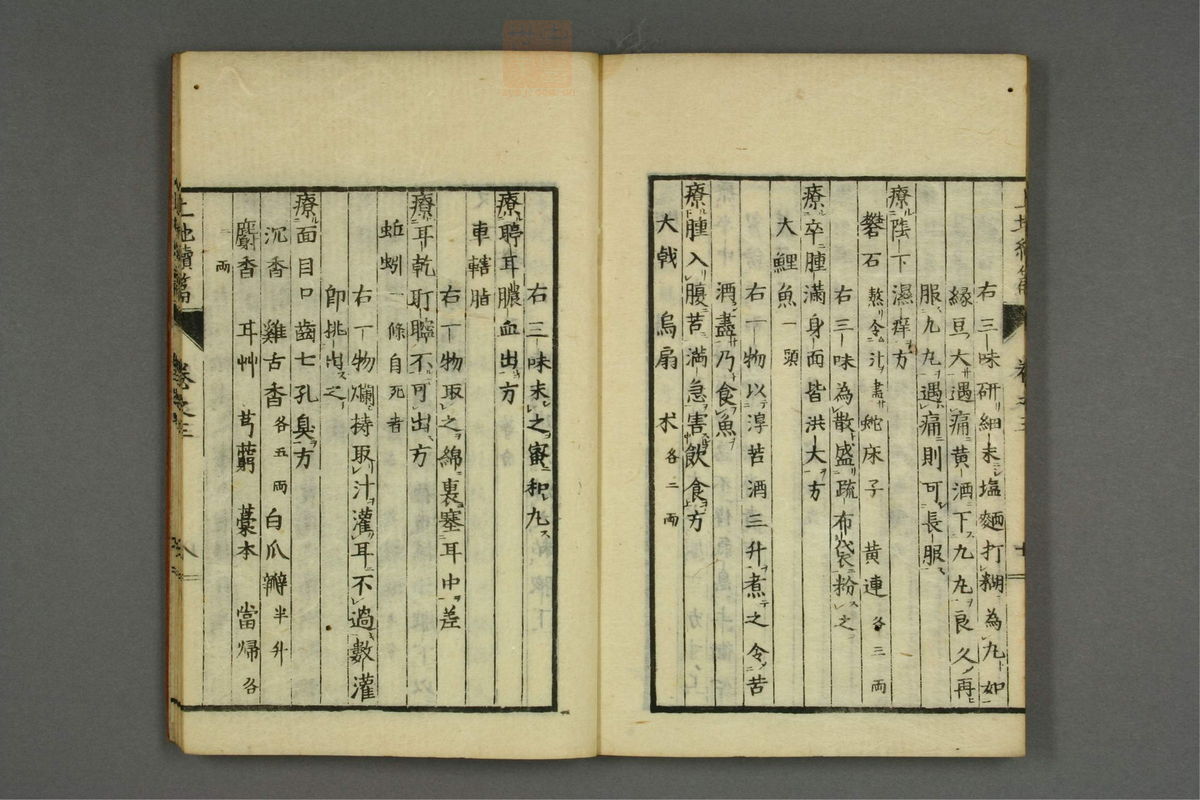 右三味研細末塩麺打糊為丸如
緑豆大遇痛黄酒下九丸良久再
服九丸遇痛則可長服
療陰下濕痒方
礬石 熬令汁盡 蛇床子 黄連 各三両
右三味為散盛疏布袋粉之
療卒腫満身面皆洪大方
大鯉魚 一頭
右一物以淳苦酒三升煮之令苦
酒盡乃食魚
療腫入腹苦満急害飲食方
大戟 烏扇 朮 各二両
右三味末之蜜和丸
療聤耳膿血出方
車轄脂
右一物取之綿裹塞耳中差
療耳乾耵聹不可出方
蚯蚓 一條自死者
右一物爛持取汁灌耳不過數灌
即挑出之
療面目口齒七孔臭方
沉香 雞古香 各五両 白瓜瓣 半升
麝香 耳艸 芎藭 藁本 當帰 各
二両
卷之三